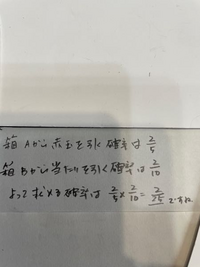 箱Aから赤玉を引く確率は 2/5
箱Bから当たりを引く確率は 2/10
よって求める確率は 2/5 × 2/10 = 2/25 です。